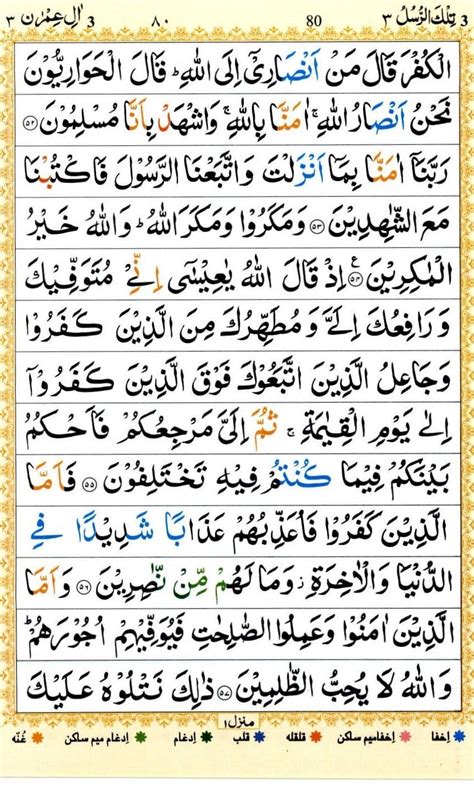 3 تِلْكَ الرُّسُلُ ٣ 80 ٨٠ اٰلِ عِمْرٰن ٣ 3
الْكُفْرَ قَالَ مَنْ اَنْصَارِىْٓ اِلَى اللّٰهِ ؕ قَالَ الْحَوَارِيُّوْنَ
نَحْنُ اَنْصَارُ اللّٰهِ ۚ اٰمَنَّا بِاللّٰهِ ۚ وَاشْهَدْ بِاَنَّا مُسْلِمُوْنَ ﴿٥٢﴾
رَبَّنَاۤ اٰمَنَّا بِمَاۤ اَنْزَلْتَ وَاتَّبَعْنَا الرَّسُوْلَ فَاكْتُبْنَا
مَعَ الشّٰهِدِيْنَ ﴿٥٣﴾ وَمَكَرُوْا وَمَكَرَ اللّٰهُ ؕ وَاللّٰهُ خَيْرُ
الْمٰكِرِيْنَ ﴿٥٤﴾ ع اِذْ قَالَ اللّٰهُ يٰعِيْسٰۤى اِنِّىْ مُتَوَفِّيْكَ
وَرَافِعُكَ اِلَىَّ وَمُطَهِّرُكَ مِنَ الَّذِيْنَ كَفَرُوْا
وَجَاعِلُ الَّذِيْنَ اتَّبَعُوْكَ فَوْقَ الَّذِيْنَ كَفَرُوْۤا
اِلٰى يَوْمِ الْقِيٰمَةِ ۚ ثُمَّ اِلَىَّ مَرْجِعُكُمْ فَاَحْكُمُ
بَيْنَكُمْ فِيْمَا كُنْتُمْ فِيْهِ تَخْتَلِفُوْنَ ﴿٥٥﴾ فَاَمَّا
الَّذِيْنَ كَفَرُوْا فَاُعَذِّبُهُمْ عَذَابًا شَدِيْدًا فِى
الدُّنْيَا وَالْاٰخِرَةِ ؗ وَمَا لَهُمْ مِّنْ نّٰصِرِيْنَ ﴿٥٦﴾ وَاَمَّا
الَّذِيْنَ اٰمَنُوْا وَعَمِلُوا الصّٰلِحٰتِ فَيُوَفِّيْهِمْ اُجُوْرَهُمْ ؕ
وَاللّٰهُ لَا يُحِبُّ الظّٰلِمِيْنَ ﴿٥٧﴾ ذٰلِكَ نَتْلُوْهُ عَلَيْكَ
منزل ١
اِخفا اِخفامیم ساکن قلقله قلب اِدغام اِدغام میم ساکن غُنّه